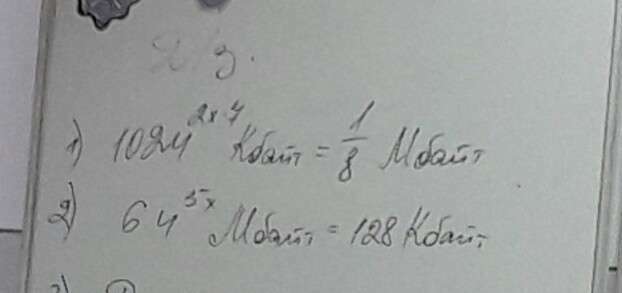 д/з.
1) 1024^2x-7 Кбайт = 1/8 Мбайт
2) 64^5x Мбайт = 128 Кбайт